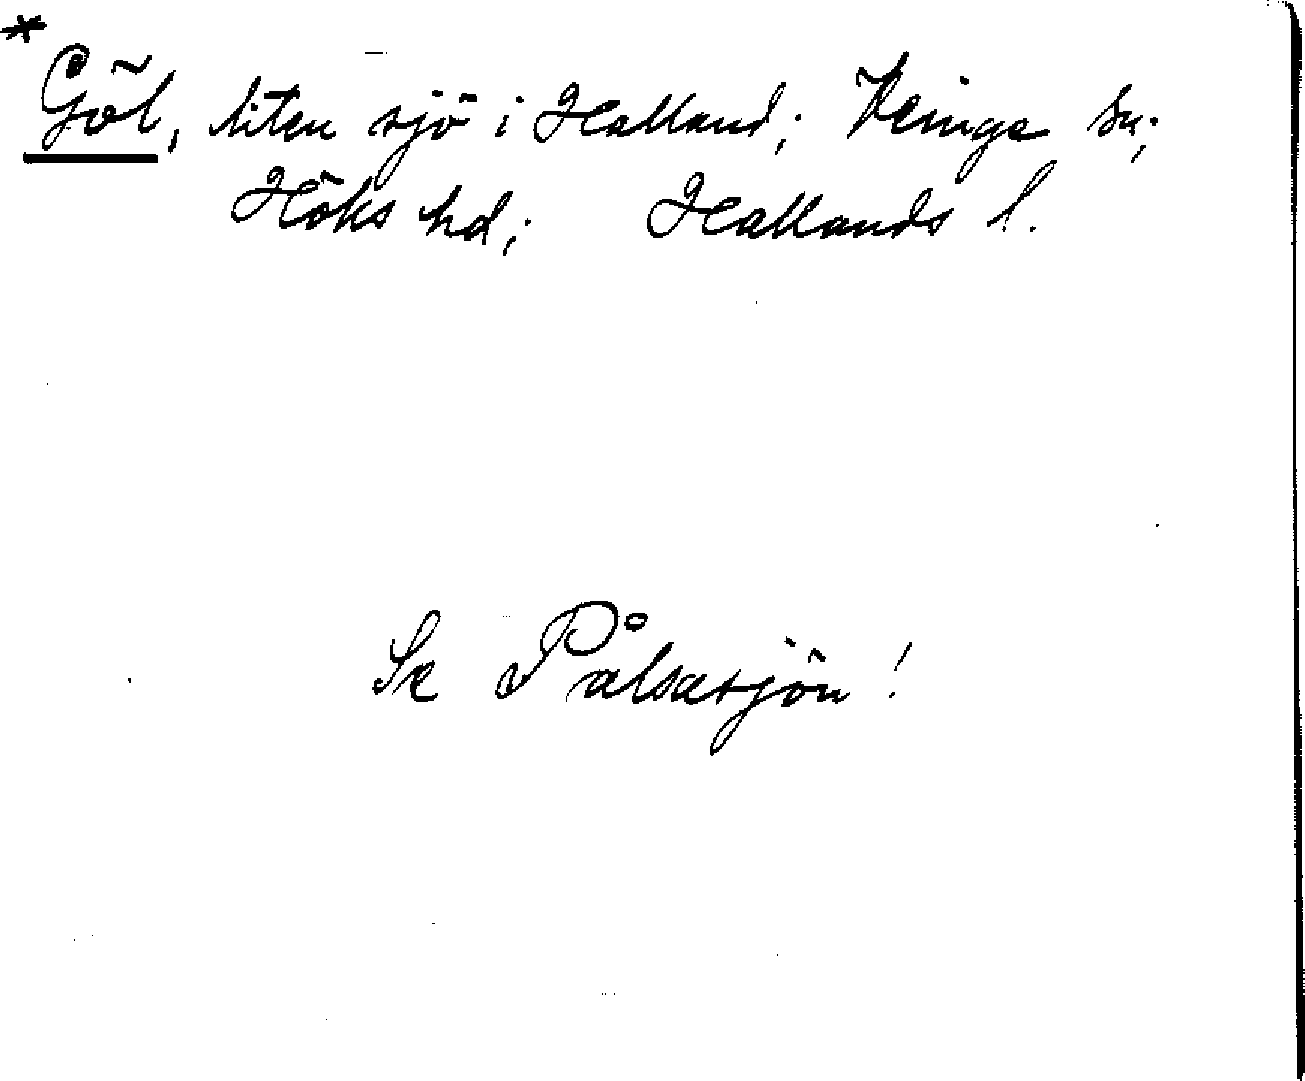 * Göl, liten sjö i Halland; Veinge sn;
Höks hd; Hallands l.
Se Pålsasjön!